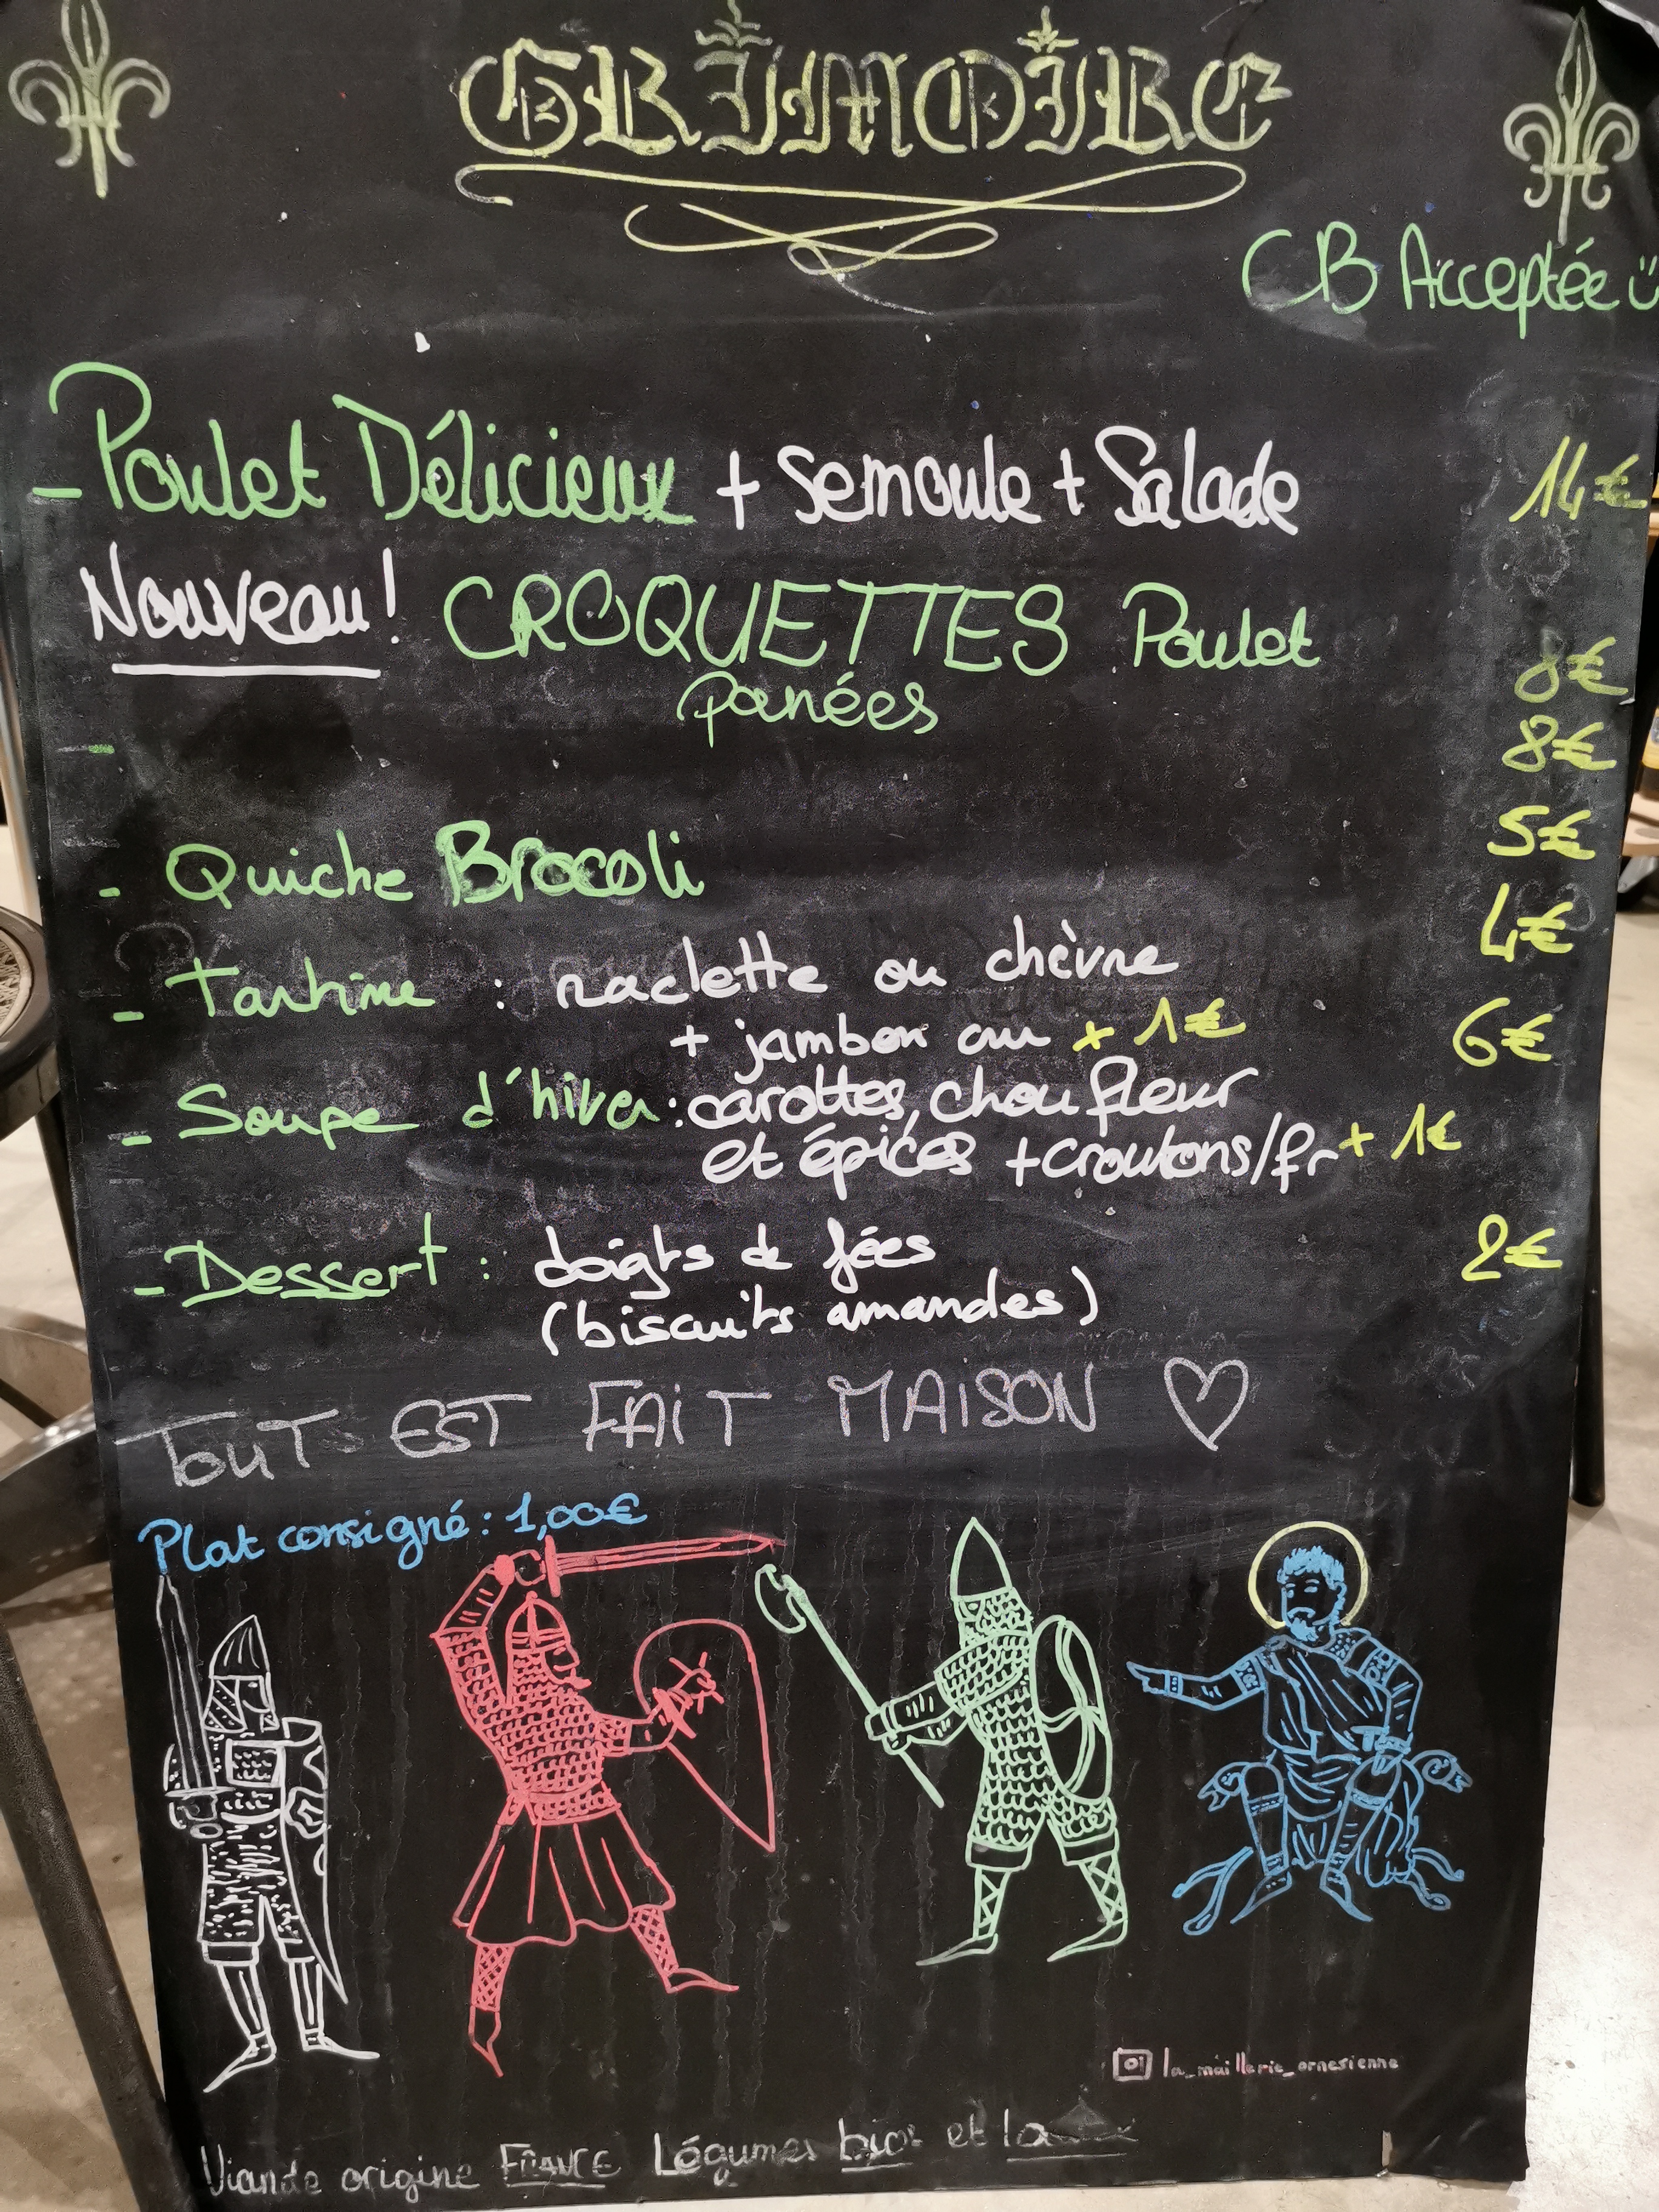 GRIMOIRE
CB Acceptée
- Poulet Délicieux + Semoule + Salade 14€
Nouveau! CROQUETTES Poulet
panées 8€
- 8€
- Quiche Brocoli 5€
- Tartine : raclette ou chèvre 4€
+ jambon ou + 1€ 6€
- Soupe d'hiver : carottes, chou fleur
et épices + croutons/fr + 1€
- Dessert : doigts de fées 2€
(biscuits amandes)
TOUT EST FAIT MAISON ♡
Plat consigné : 1,00€
la_maillerie_ornesienne
Viande origine FRANCE Légumes bios et